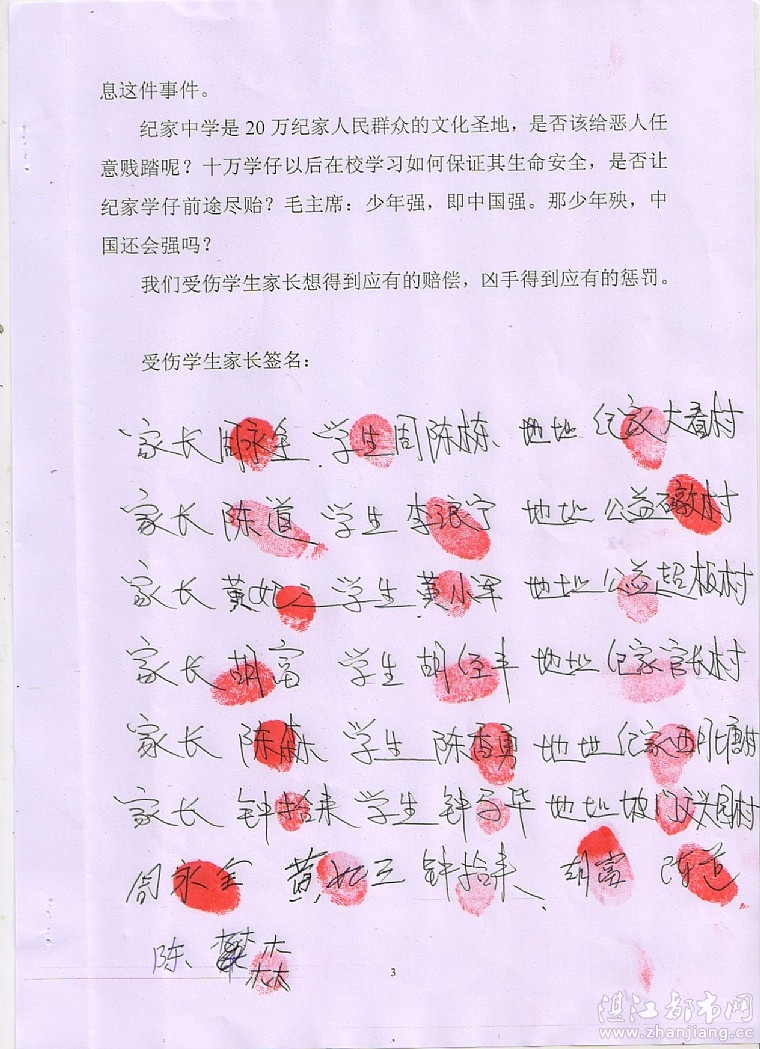 息这件事件。
纪家中学是 20 万纪家人民群众的文化圣地，是否该给恶人任
意贱踏呢？十万学仔以后在校学习如何保证其生命安全，是否让
纪家学仔前途尽贻？毛主席：少年强，即中国强。那少年殃，中
国还会强吗？
我们受伤学生家长想得到应有的赔偿，凶手得到应有的惩罚。
受伤学生家长签名：
家长 周永全 学生 周陈栋、地址 纪家大看村
家长 陈道 学生 李浪宁 地址 公益墩村
家长 黄妃三 学生 黄小军 地址 公益超板村
家长 胡富 学生 胡经丰 地址 纪家官长村
家长 陈森 学生 陈香勇 地址 纪家西村
家长 钟拾来 学生 钟 华 地址 坡门村
周永全 黄妃三 钟拾来 胡富 陈道
陈、森
3
湛江都市网
www.zhanjiang.cc